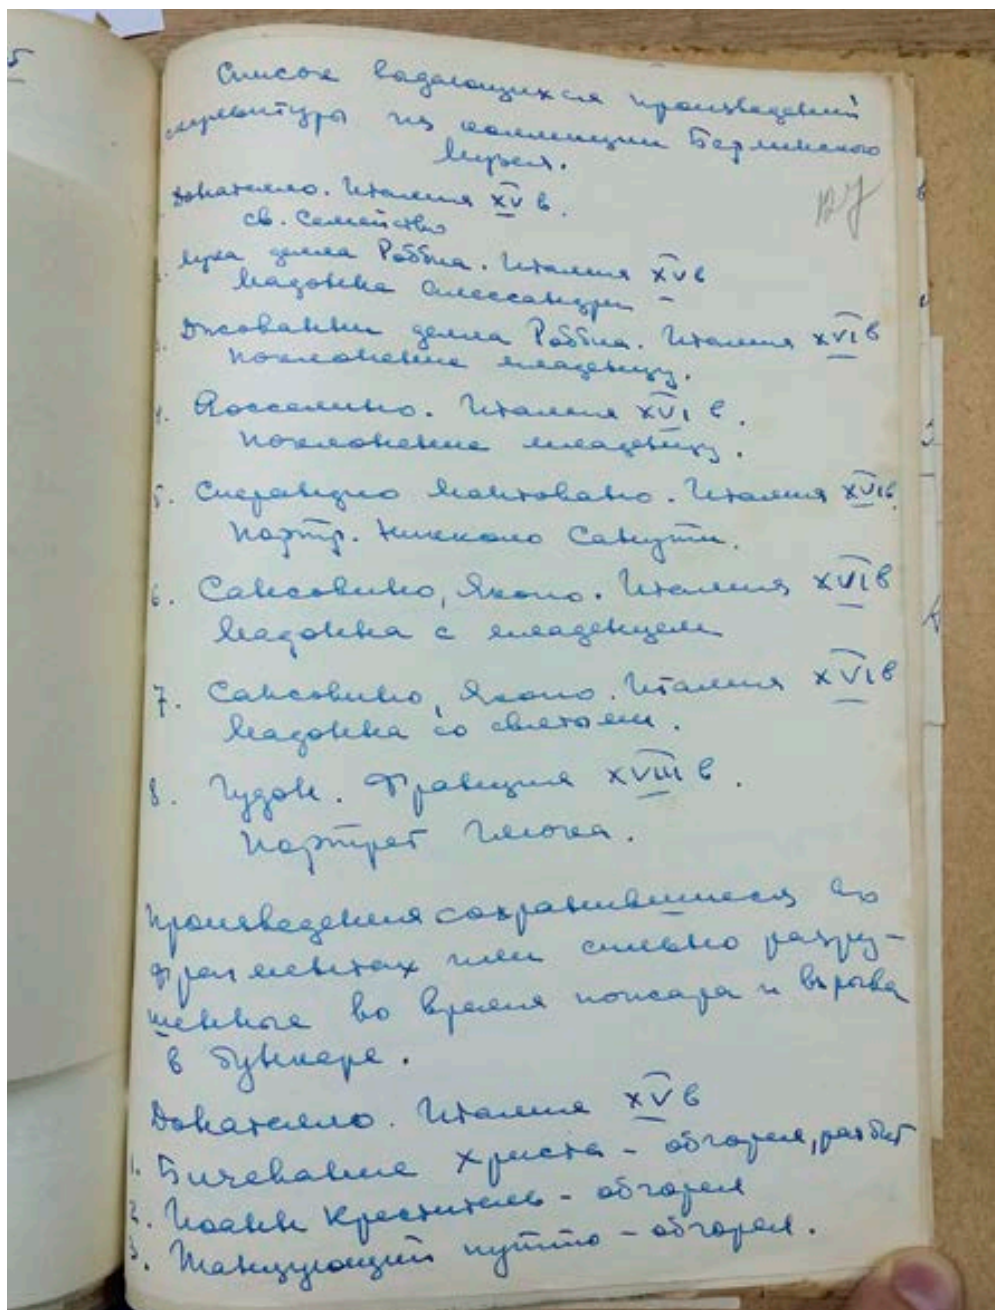 5
Список выдающихся произведений
скульптуры из коллекции Берлинского
Музея.
Донателло. Италия XV в.
св. Семейство
Лука делла Роббиа. Италия XV в
Мадонна Алессандри –
Джованни делла Роббиа. Италия XVI в
Поклонение младенцу.
4. Росселино. Италия XVI в.
Поклонение младенцу.
5. Сперандио Мантовано. Италия XVI в.
Портр. Никколо Санути.
6. Сансовино, Якопо. Италия XVI в
Мадонна с младенцем
7. Сансовино, Якопо. Италия XVI в
Мадонна со святоми.
8. Гудон. Франция XVIII в.
Портрет Глюка.
Произведения сохранившиеся во
фрагментах или сильно разру-
шенные во время пожара и взрыва
в бункере.
Донателло. Италия XV в
1. Бичевание Христа – обгорел, разбит
2. Иоанн Креститель – обгорел
3. Танцующий путто – обгорел.